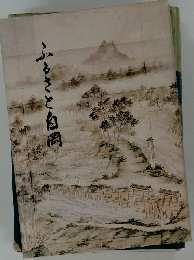 ふるさと白岡